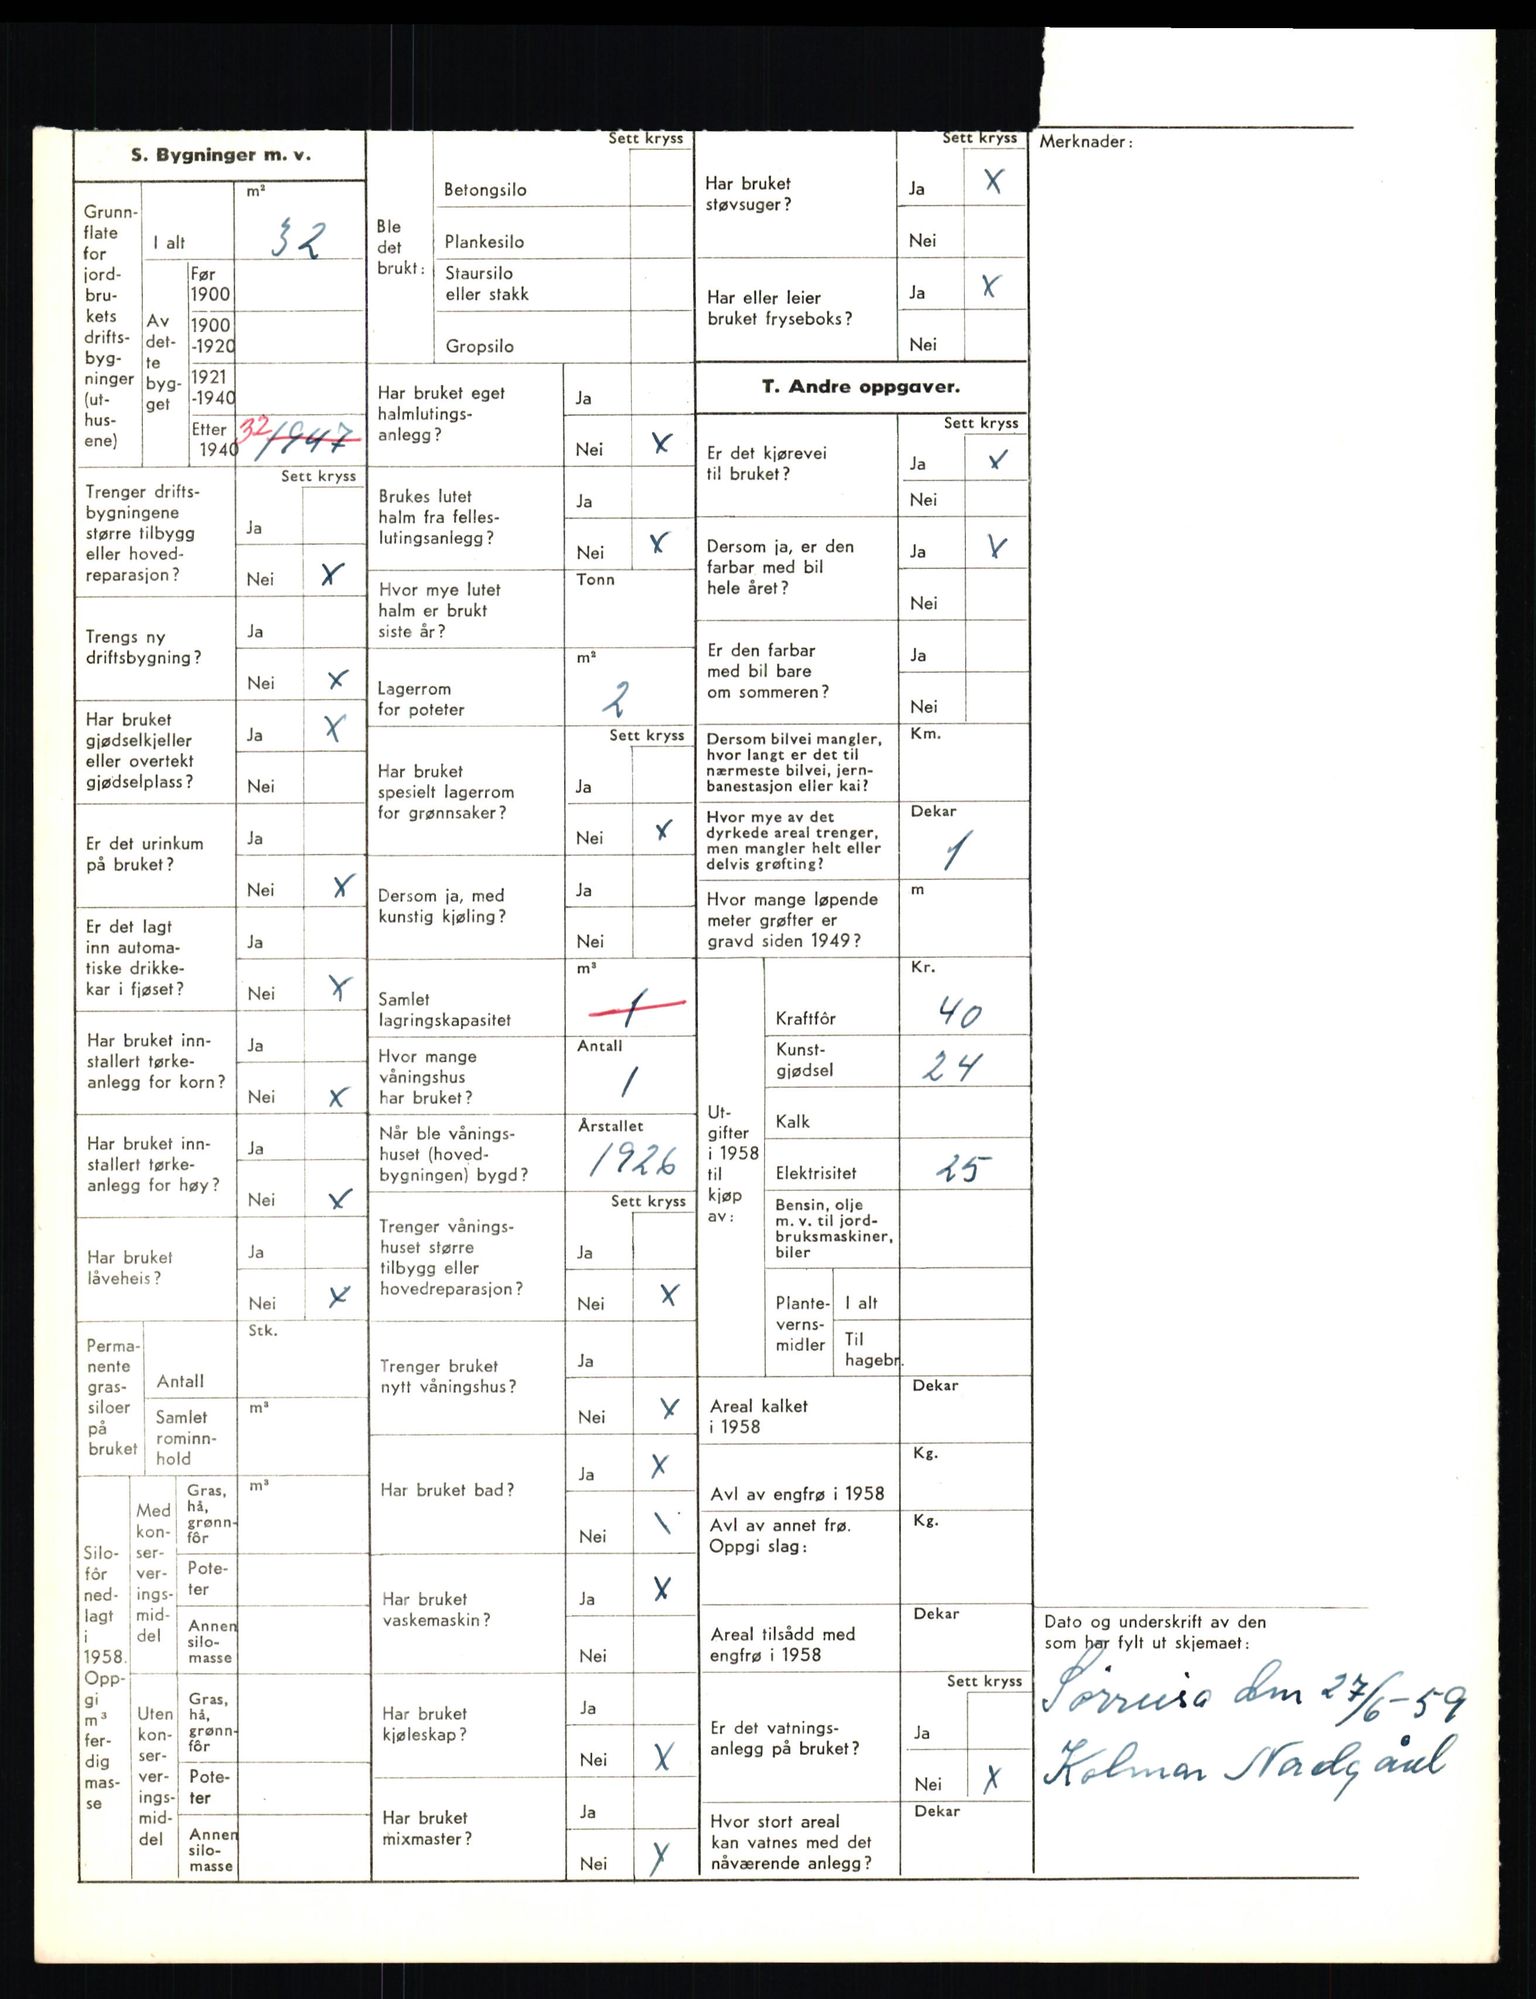 S. Bygninger m. v.
Grunn-
flate
for
jord-
bru-
kets
drifts-
byg-
ninger
(ut-
hus-
ene)
I alt
m²
32
Av
det-
te
byg-
get
Før
1900
1900
-1920
1921
-1940
Etter
1940
32 1947
Sett kryss
Trenger drifts-
bygningene
større tilbygg
eller hoved-
reparasjon?
Ja
Nei X
Trengs ny
driftsbygning?
Ja
Nei X
Har bruket
gjødselkjeller
eller overtekt
gjødselplass?
Ja X
Nei
Er det urinkum
på bruket?
Ja
Nei X
Er det lagt
inn automa-
tiske drikke-
kar i fjøset?
Ja
Nei X
Har bruket inn-
stallert tørke-
anlegg for korn?
Ja
Nei X
Har bruket inn-
stallert tørke-
anlegg for høy?
Ja
Nei X
Har bruket
låveheis?
Ja
Nei X
Perma-
nente
gras-
siloer
på
bruket
Stk.
Antall
Samlet
rominn-
hold
m³
Silo-
fôr
ned-
lagt
i
1958.
Opp-
gi
m³
fer-
dig
mas-
se
Med
kon-
ser-
ver-
ings-
mid-
del
Gras,
hå,
grønn-
fôr
m³
Pote-
ter
Annen
silo-
masse
Uten
kon-
ser-
ver-
ings-
mid-
del
Gras,
hå,
grønn-
fôr
Pote-
ter
Annen
silo-
masse
Sett kryss
Ble
det
brukt:
Betongsilo
Plankesilo
Staursilo
eller stakk
Gropsilo
Har bruket eget
halmlutings-
anlegg?
Ja
Nei X
Brukes lutet
halm fra felles-
lutingsanlegg?
Ja
Nei X
Hvor mye lutet
halm er brukt
siste år?
Tonn
Lagerrom
for poteter
m²
2
Sett kryss
Har bruket
spesielt lagerrom
for grønnsaker?
Ja
Nei X
Dersom ja, med
kunstig kjøling?
Ja
Nei
Samlet
lagringskapasitet
m³
1
Hvor mange
våningshus
har bruket?
Antall
1
Når ble vånings-
huset (hoved-
bygningen) bygd?
Årstallet
1926
Sett kryss
Trenger vånings-
huset større
tilbygg eller
hovedreparasjon?
Ja
Nei X
Trenger bruket
nytt våningshus?
Ja
Nei X
Har bruket bad?
Ja X
Nei \
Har bruket
vaskemaskin?
Ja X
Nei
Har bruket
kjøleskap?
Ja
Nei X
Har bruket
mixmaster?
Ja
Nei X
Sett kryss
Har bruket
støvsuger?
Ja X
Nei
Har eller leier
bruket fryseboks?
Ja X
Nei
T. Andre oppgaver.
Sett kryss
Er det kjørevei
til bruket?
Ja X
Nei
Dersom ja, er den
farbar med bil
hele året?
Ja X
Nei
Er den farbar
med bil bare
om sommeren?
Ja
Nei
Dersom bilvei mangler,
hvor langt er det til
nærmeste bilvei, jern-
banestasjon eller kai?
Km.
Hvor mye av det
dyrkede areal trenger,
men mangler helt eller
delvis grøfting?
Dekar
1
Hvor mange løpende
meter grøfter er
gravd siden 1949?
m
Ut-
gifter
i 1958
til
kjøp
av:
Kr.
Kraftfôr 40
Kunst-
gjødsel 24
Kalk
Elektrisitet 25
Bensin, olje
m. v. til jord-
bruksmaskiner,
biler
Plante-
verns-
midler
I alt
Til
hagebr.
Areal kalket
i 1958
Dekar
Avl av engfrø i 1958
Kg.
Avl av annet frø.
Oppgi slag:
Kg.
Areal tilsådd med
engfrø i 1958
Dekar
Sett kryss
Er det vatnings-
anlegg på bruket?
Ja
Nei X
Hvor stort areal
kan vatnes med det
nåværende anlegg?
Dekar
Merknader:
Dato og underskrift av den
som har fylt ut skjemaet:
Sørreisa den 27/6-59
Kolmar Nordgård